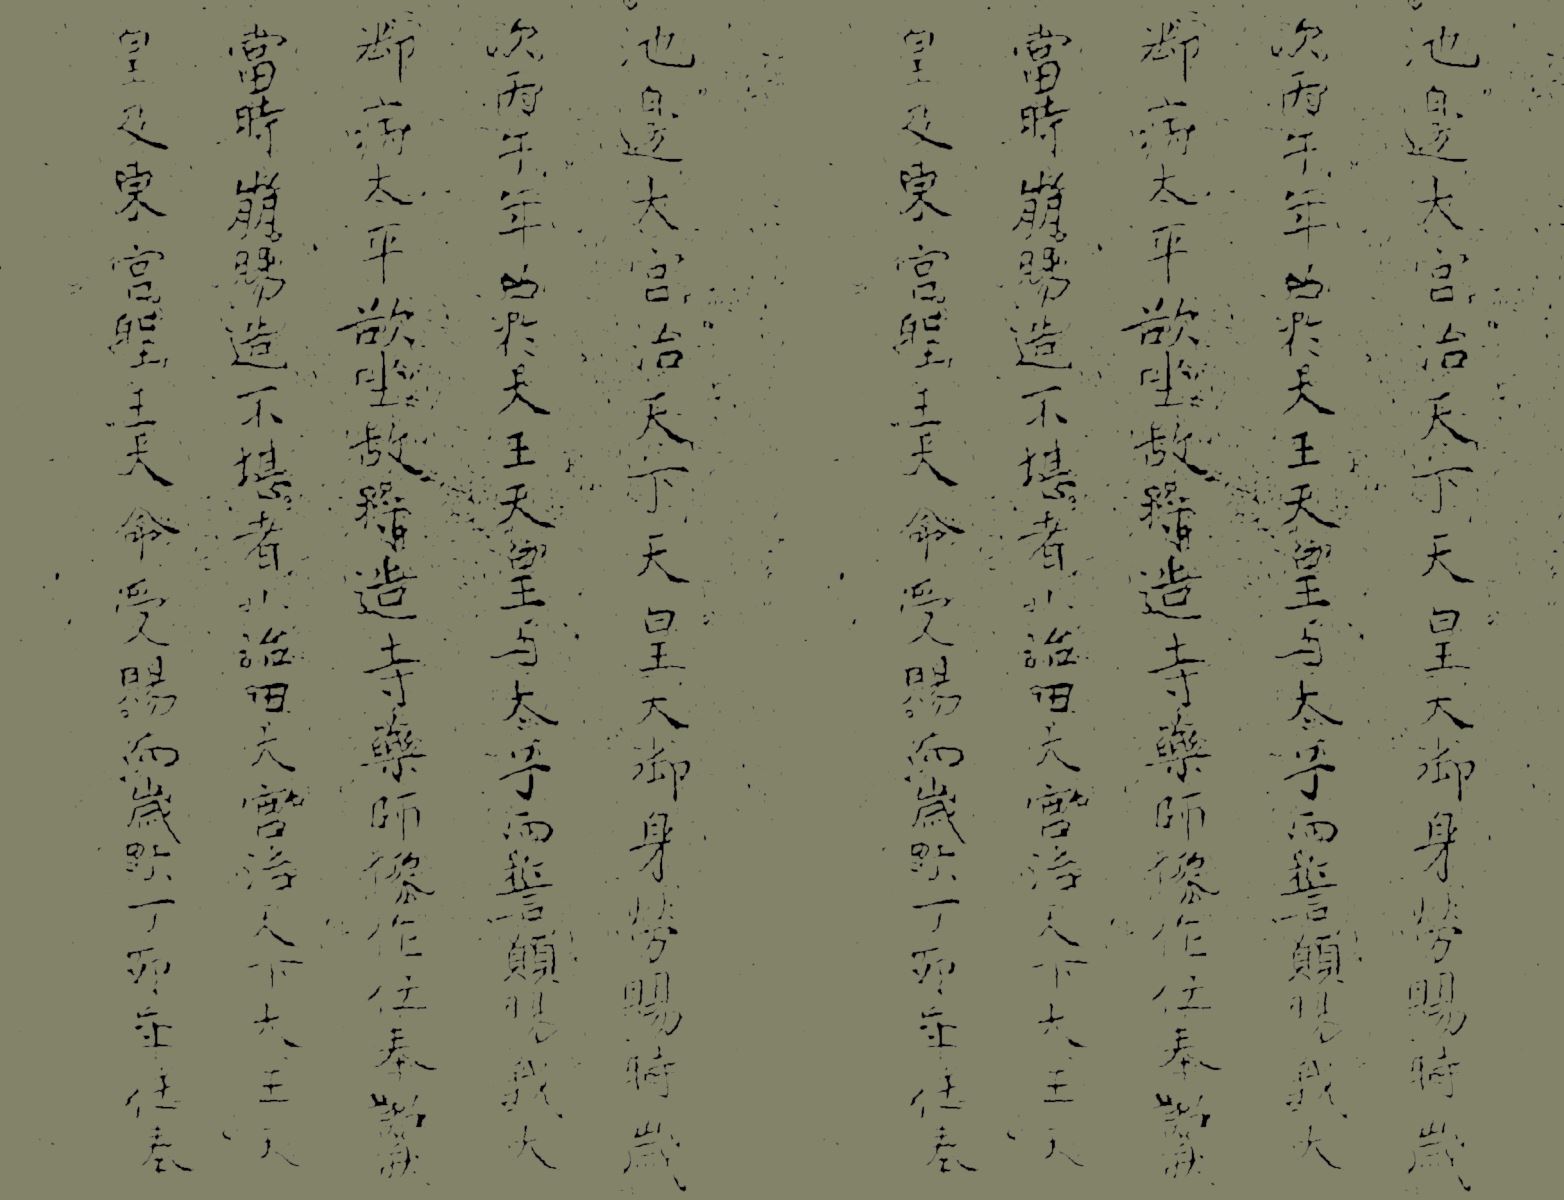 池邊大宮治天下天皇大御身勞賜時歲
次丙午年召於大王天皇与太子而誓願賜我大
御病太平欲坐故将造寺藥師像作仕奉詔然
當時崩賜造不堪者小治田大宮治天下大王天
皇及東宮聖王大命受賜而歲次丁卯年仕奉
池邊大宮治天下天皇大御身勞賜時歲
次丙午年召於大王天皇与太子而誓願賜我大
御病太平欲坐故将造寺藥師像作仕奉詔然
當時崩賜造不堪者小治田大宮治天下大王天
皇及東宮聖王大命受賜而歲次丁卯年仕奉